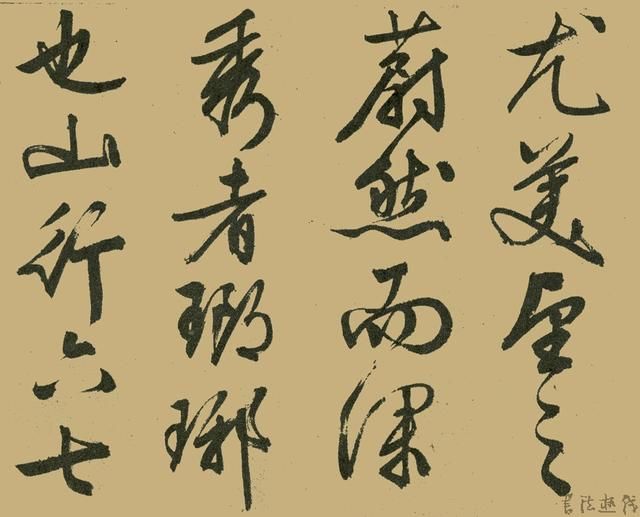 尤美望之
蔚然而深
秀者瑯琊
也山行六七
书法趣线